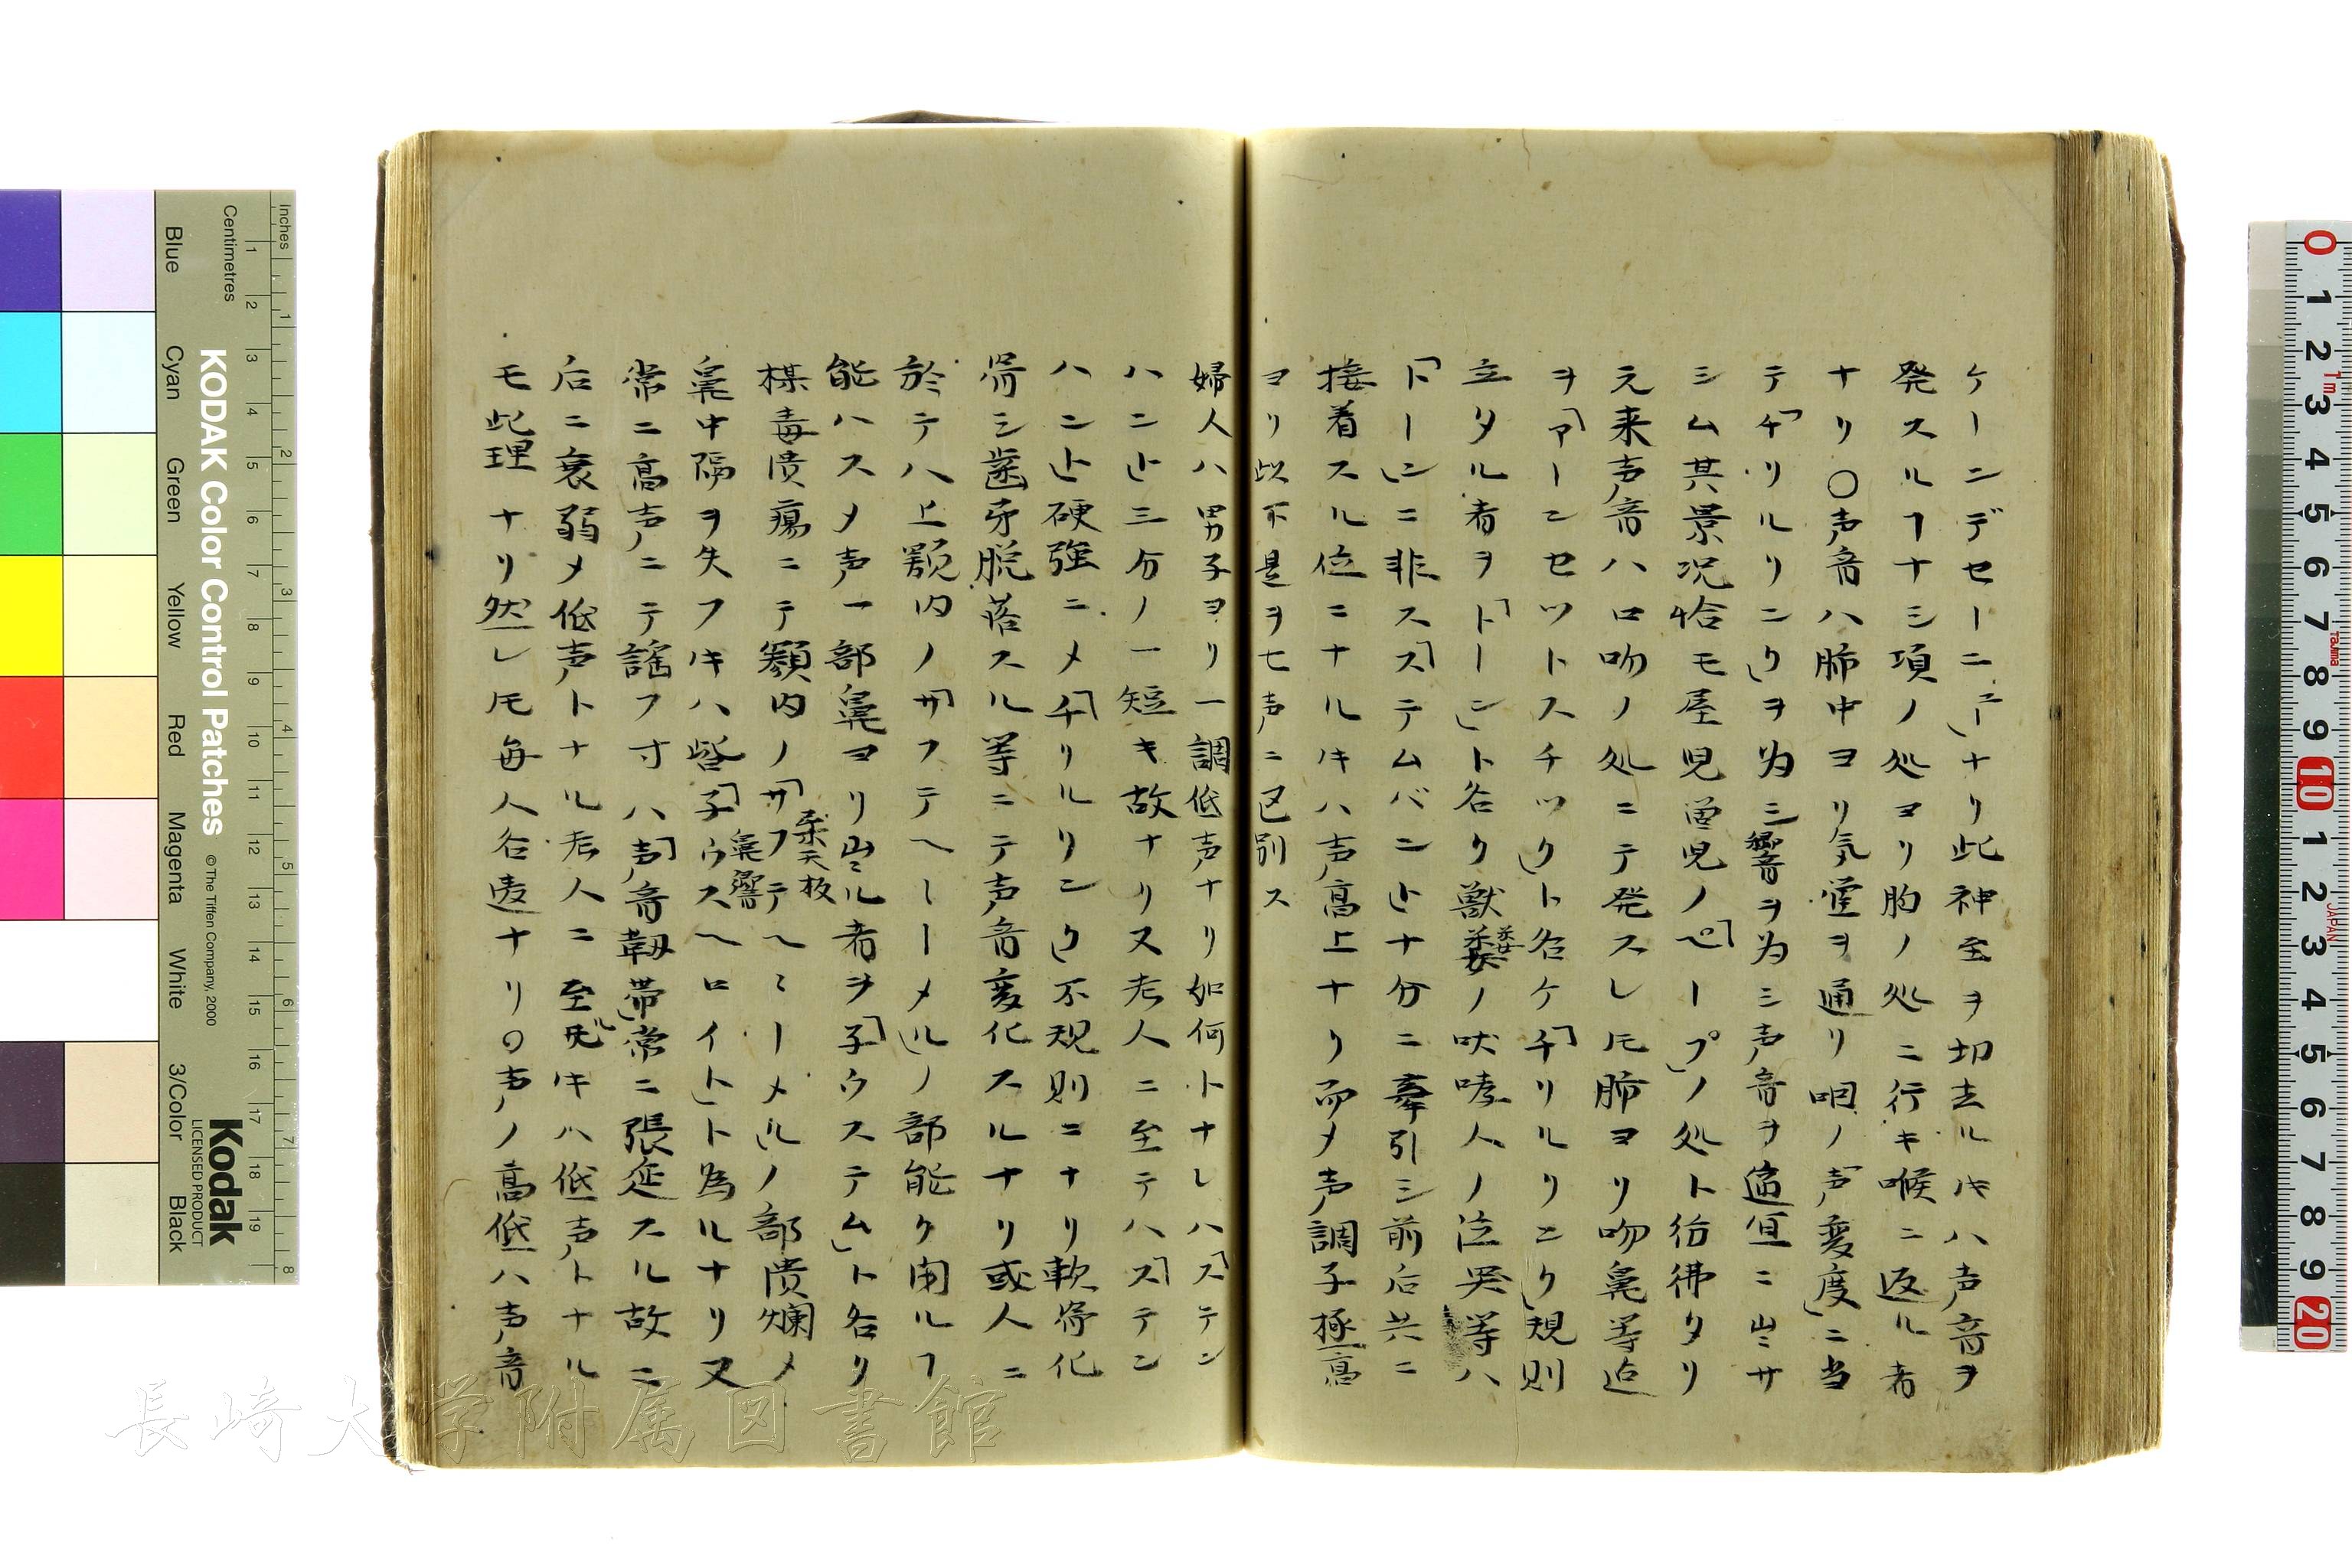 ケーンデセーニューナリ此神至ヲ切去ルキハ声音ヲ
発スルヿナシ項ノ処ヨリ胸ノ処ニ行キ喉ニ返ル者
ナリ〇声音ハ肺中ヨリ気管ヲ通リ咽ノ「声変度」ニ当
テ「チリルリンク」ヲ為シ響音ヲ為シ声音ヲ適宜ニ出サ
シム其景況恰モ屋児曽児ノ「ペープ」ノ処ト彷彿タリ
元来声音ハ口吻ノ処ニテ発スレ𪜈肺ヨリ吻鼻等迠
ヲ「アーンセットスチック」ト名ケ「チリルリンク」規則
立タル者ヲ「トーン」ト名ク獣類ノ吠哮人ノ泣哭等ハ
「トーン」ニ非ス「ステムバント」十分ニ牽引シ前后共ニ
接着スル位ニナルキハ声高上ナリ而メ声調子極高
ヨリ以下是ヲ七声ニ区別ス
婦人ハ男子ヨリ一調低声ナリ如何トナレハ「ステン
ハント」三分ノ一短キ故ナリ又老人ニ至テハ「ステン
ハント」硬強ニメ「チリルリンク」不規則ニナリ軟骨化
骨シ歯牙脱落スル等ニテ声音変化スルナリ或人ニ
於テハ上顎内ノ「サフテヘーメル」ノ部能ク閉ルヿ
能ハスメ声一部鼻ヨリ出ル者ヲ「子ウステム」ト名リ
楳毒潰瘍ニテ顎内ノ「サフテヘミーメル」ノ部潰爛メ
柔天板
鼻中隔ヲ失フキハ皆「子ウスヘロイト」ト為ルナリ又
鼻響
常ニ高声ニテ謡フ寸ハ「声音靱帯」常ニ張延スル故ニ
后ニ衰弱メ低声トナル老人ニ至ルキハ低声トナル
モ此理ナリ然レ𪜈毎人各違ナリ〇声ノ高低ハ声音
KODAK Color Control Patches
© The Tiffen Company, 2000
Kodak
LICENSED PRODUCT
Inches
Centimetres
Blue Cyan Green Yellow Red Magenta White 3/Color Black
長崎大学附属図書館